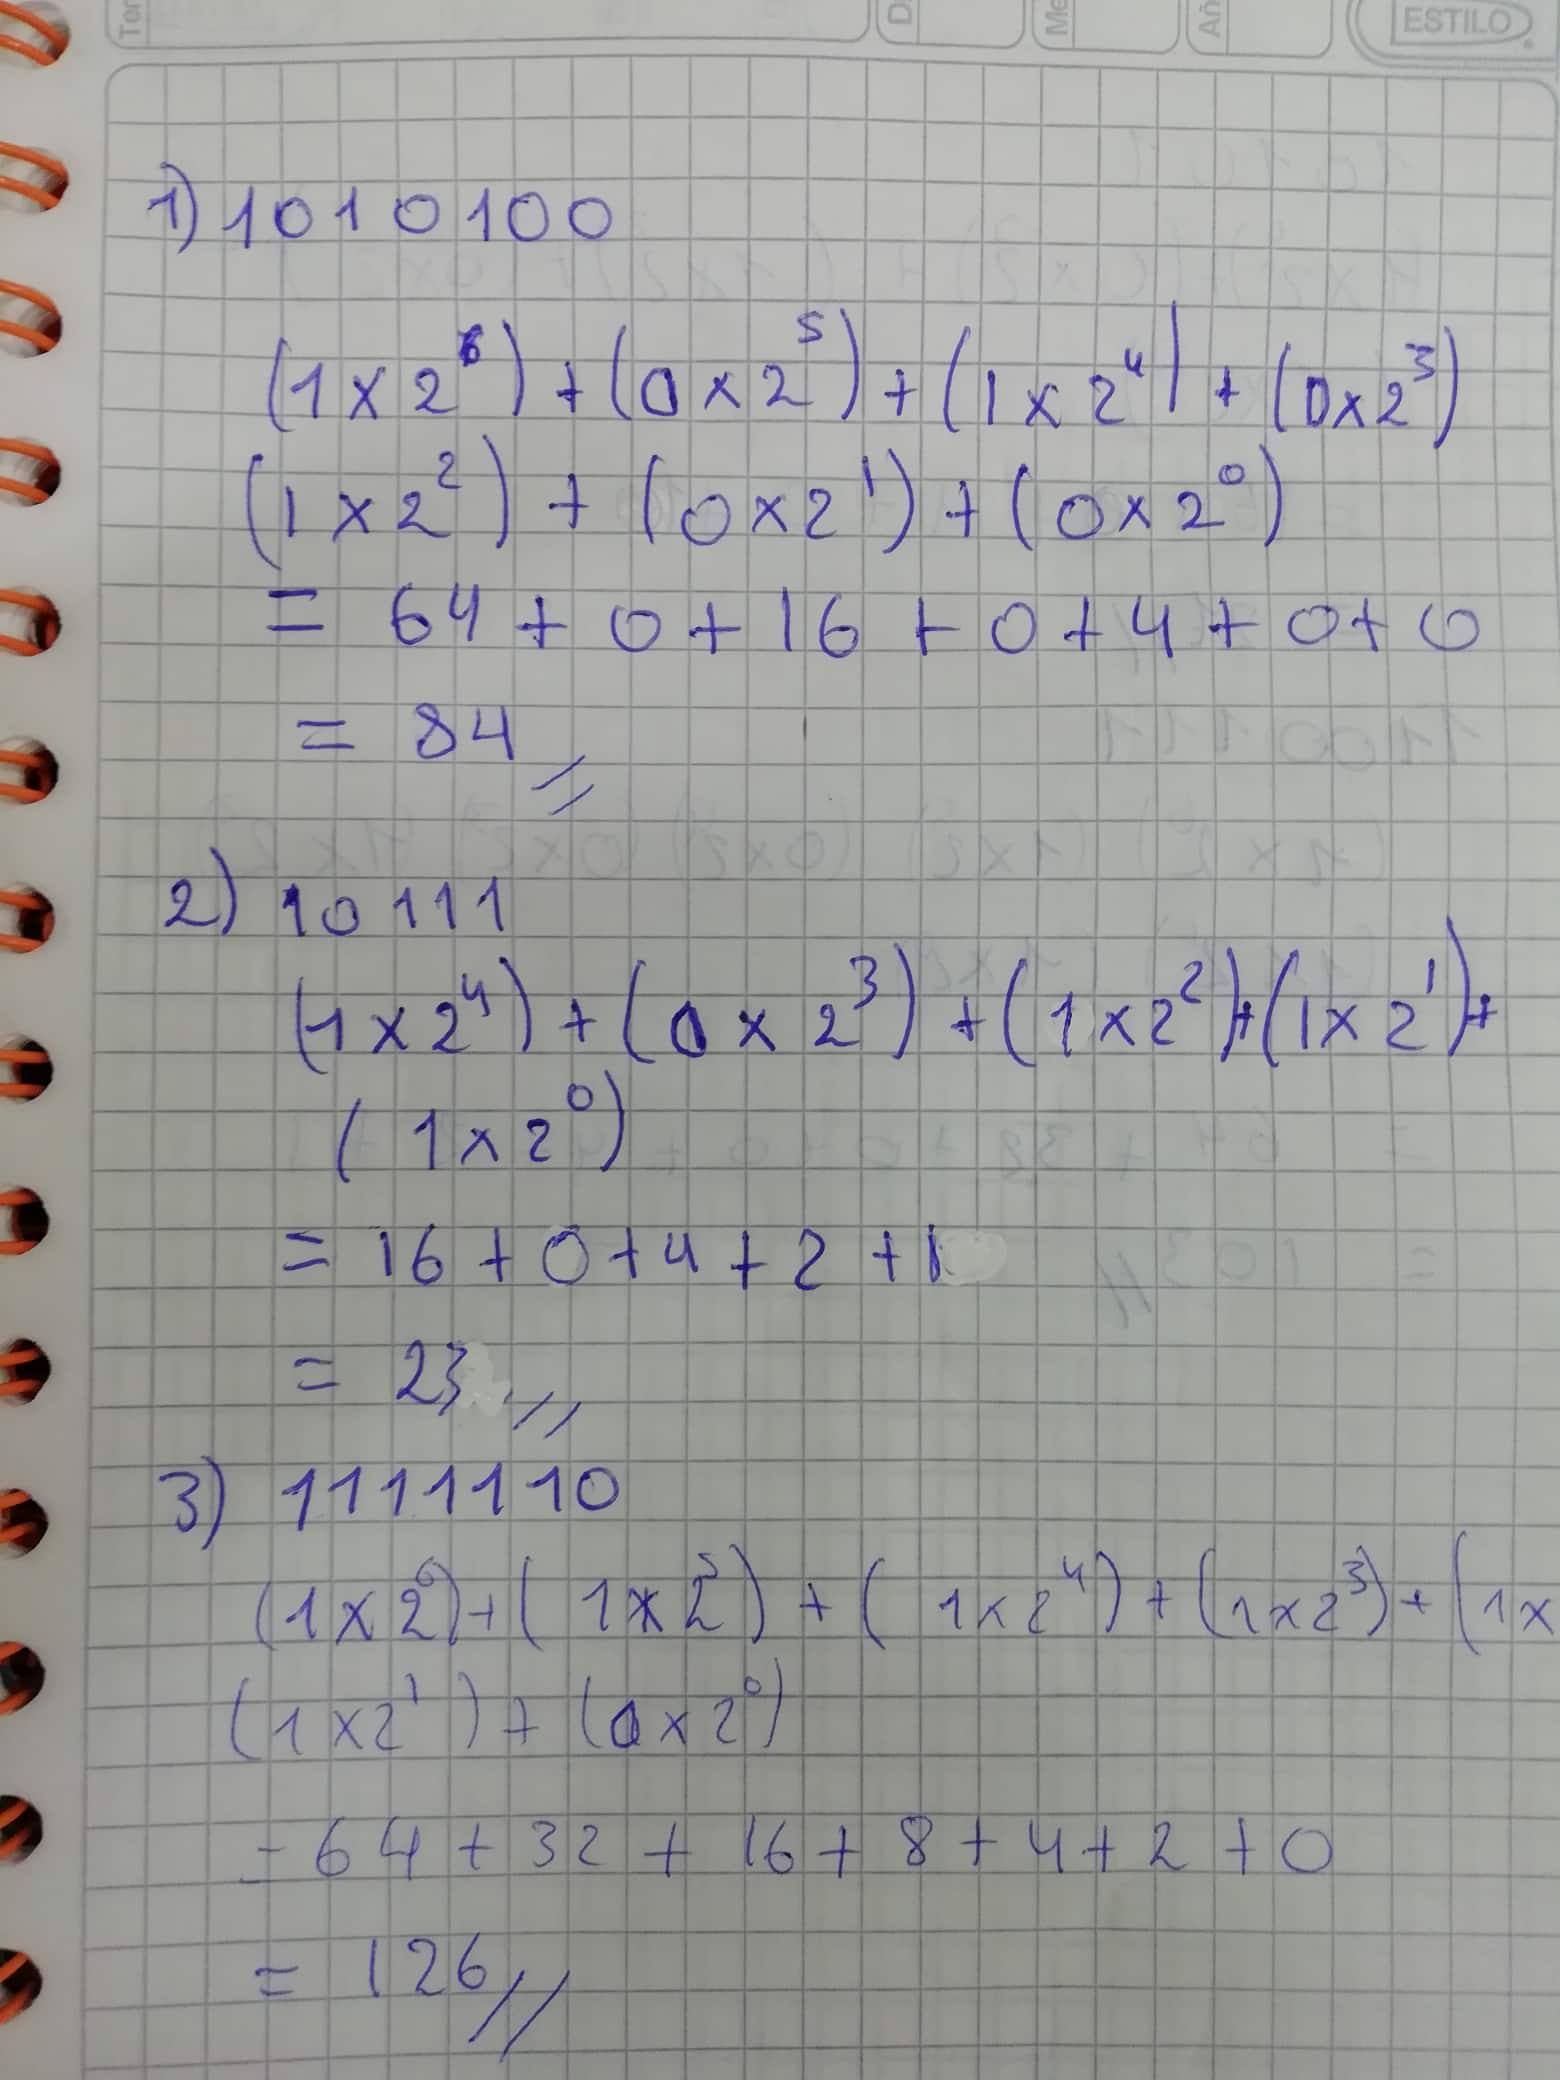 Tem
D
Me
Añ
ESTILO
1) 1010100
(1 x 2⁶) + (0 x 2⁵) + (1 x 2⁴) + (0 x 2³)
(1 x 2²) + (0 x 2¹) + (0 x 2⁰)
= 64 + 0 + 16 + 0 + 4 + 0 + 0
= 84 //
2) 10111
(1 x 2⁴) + (0 x 2³) + (1 x 2²) + (1 x 2¹) +
(1 x 2⁰)
= 16 + 0 + 4 + 2 + 1
= 23 //
3) 1111110
(1 x 2⁶) + (1 x 2⁵) + (1 x 2⁴) + (1 x 2³) + (1 x
(1 x 2¹) + (0 x 2⁰)
= 64 + 32 + 16 + 8 + 4 + 2 + 0
= 126 //